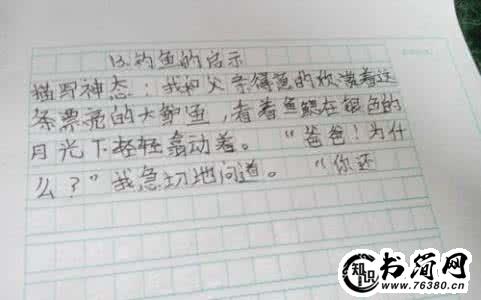 13.钓鱼的启示
描写神态：我和父亲得意的欣赏着这
条票亮的大鲈鱼，看着鱼鳃在银色的
月光下轻轻翕动着。 “爸爸！为什
么？”我急切地问道。 “你还
知识
书简网
www.76380.cn